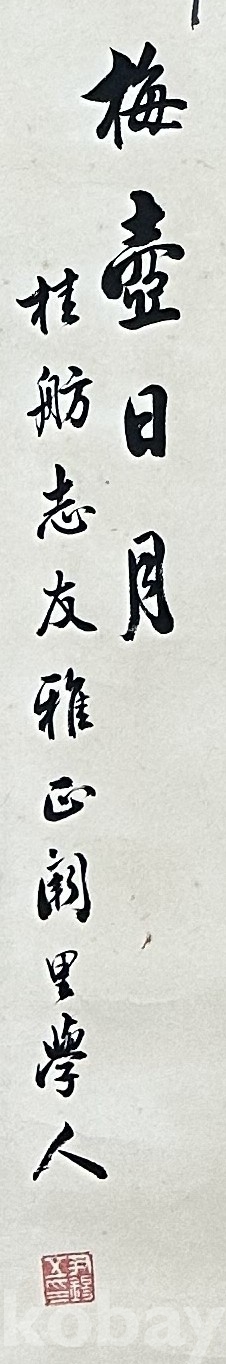 梅壺日月
桂舫志友雅正闕里學人
kobay